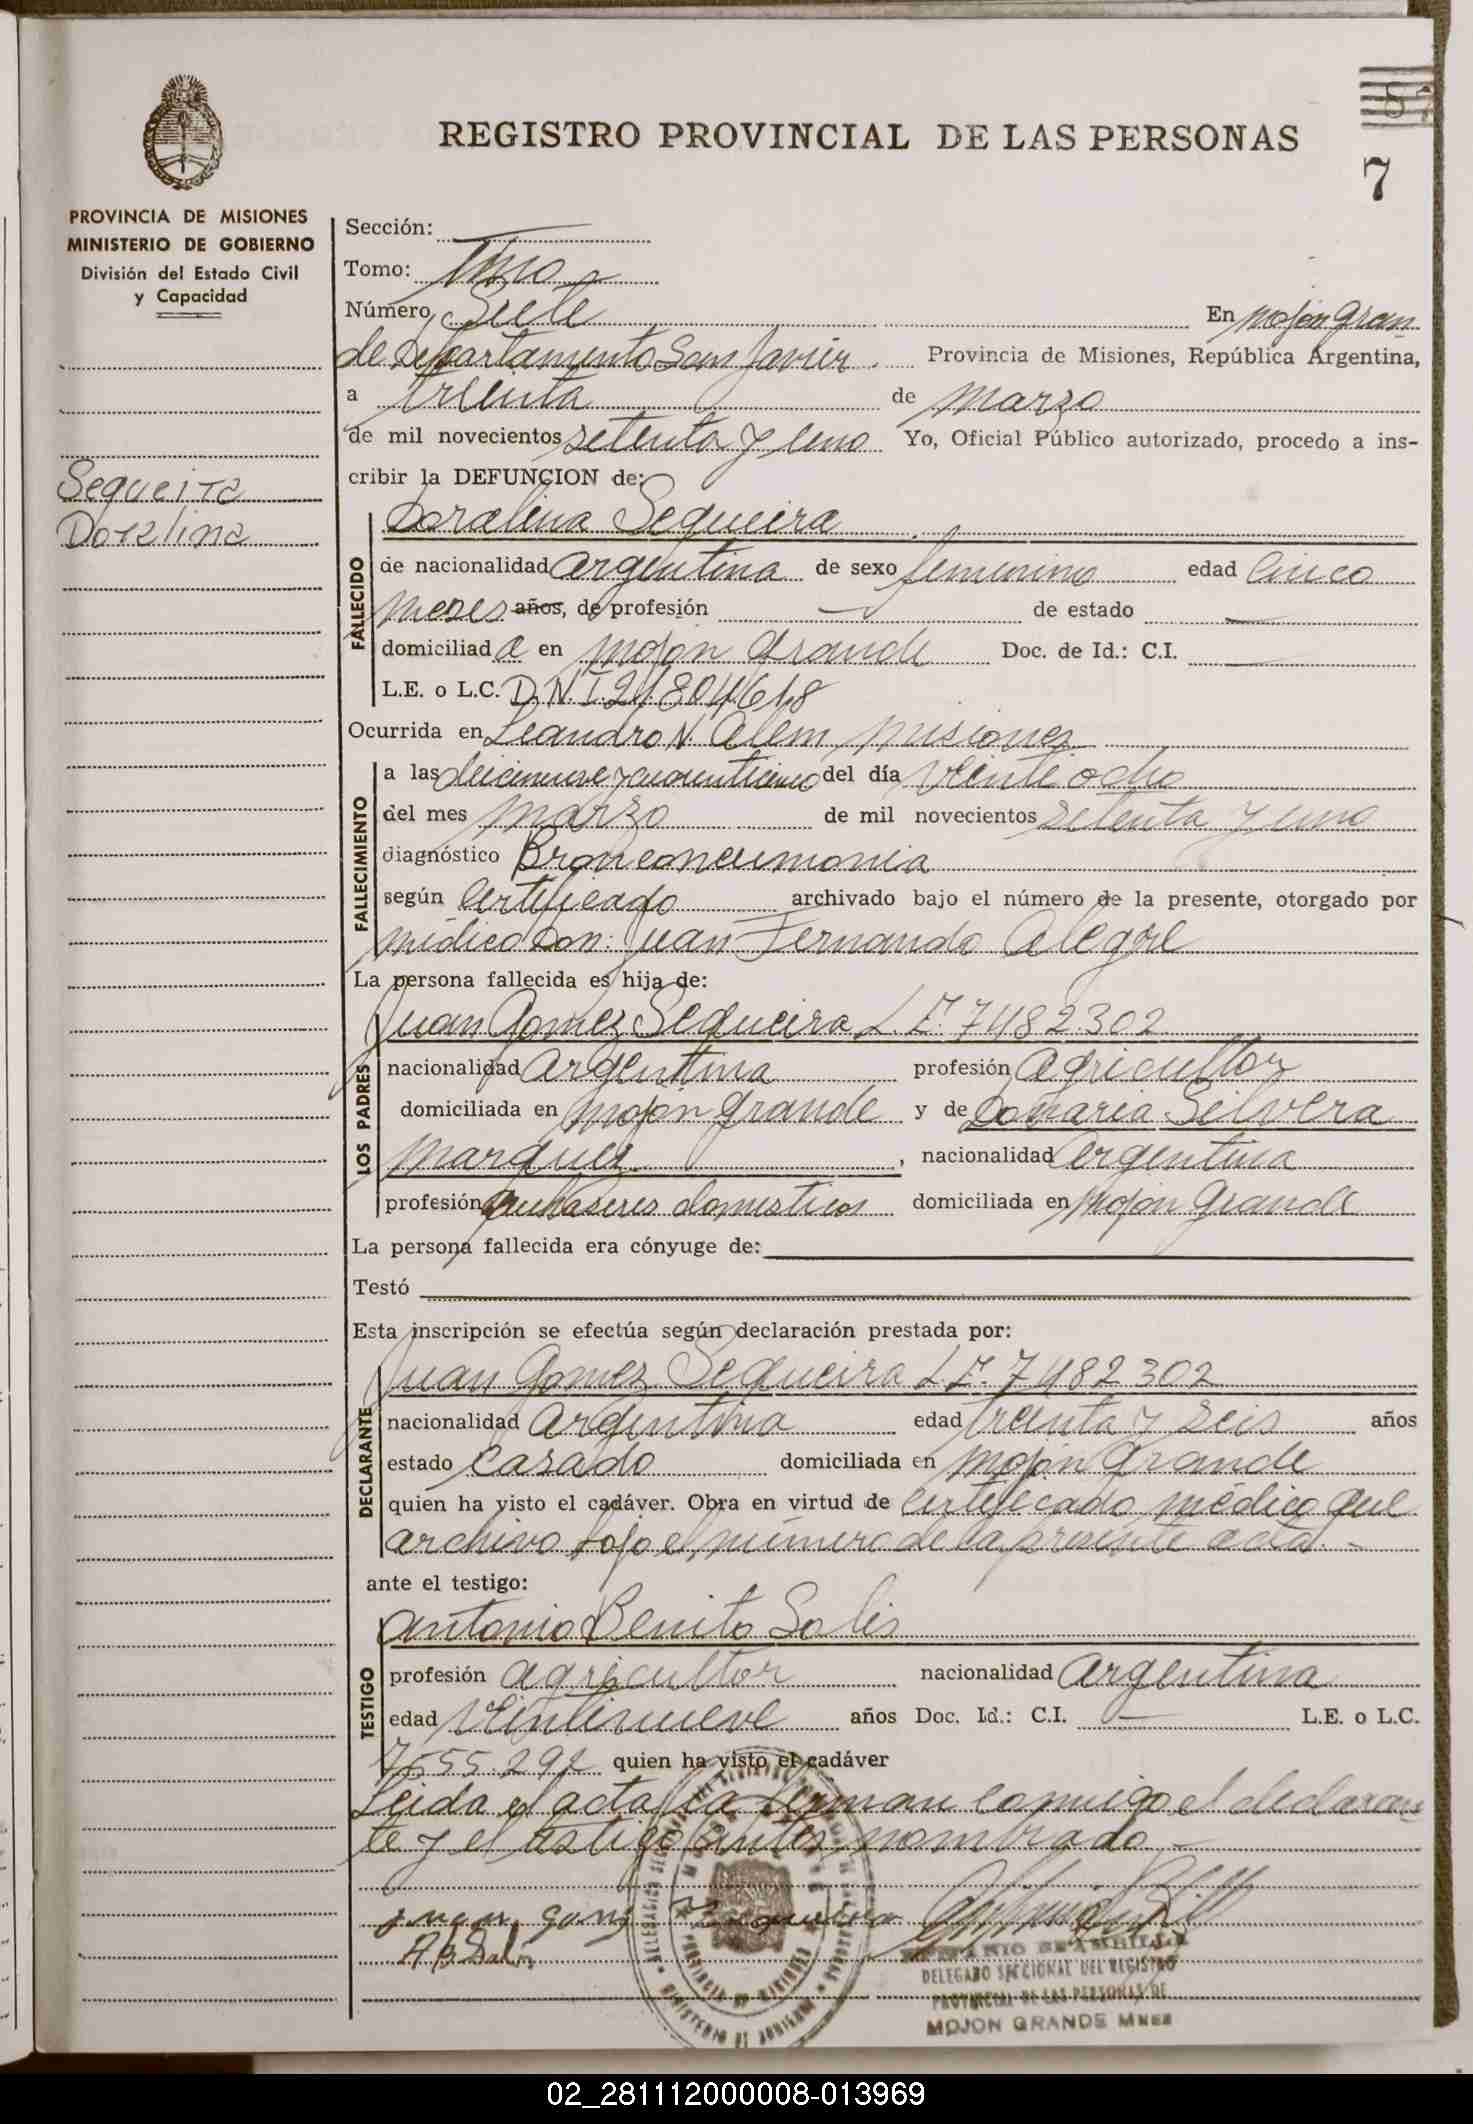 REGISTRO PROVINCIAL DE LAS PERSONAS
7
PROVINCIA DE MISIONES
MINISTERIO DE GOBIERNO
División del Estado Civil
y Capacidad
Sequeira
Doralina
Sección:
Tomo: Uno
Número Siete En Mojón Gran
de Departamento San Javier. Provincia de Misiones, República Argentina,
a treinta de marzo
de mil novecientos setenta y uno Yo, Oficial Público autorizado, procedo a ins-
cribir la DEFUNCION de:
Doralina Sequeira
FALLECIDO
de nacionalidad argentina de sexo femenino edad cinco
meses años, de profesión — de estado —
domiciliad a en Mojón Grande Doc. de Id.: C.I. —
L.E. o L.C. D.N.I. 21.804.618
Ocurrida en Leandro N. Alem, Misiones
FALLECIMIENTO
a las del día veinte ocho
del mes marzo de mil novecientos setenta y uno
diagnóstico Bronconeumonia
según certificado archivado bajo el número de la presente, otorgado por
médico Don: Juan Fernando Alegre
La persona fallecida es hija de:
Juan Gomez Sequeira L.E. 7482302
LOS PADRES
nacionalidad argentina profesión agricultor
domiciliada en Mojón Grande y de Da Maria Silvera
Marquez, nacionalidad argentina
profesión quehaseres domesticos domiciliada en Mojón Grande
La persona fallecida era cónyuge de:
Testó
Esta inscripción se efectúa según declaración prestada por:
Juan Gomez Sequeira L.E. 7482302
DECLARANTE
nacionalidad argentina edad treinta y seis años
estado casado domiciliada en Mojón Grande
quien ha visto el cadáver. Obra en virtud de certificado médico que
archivo bajo el número de la presente acta. -
ante el testigo:
Antonio Benito Solis
TESTIGO
profesión agricultor nacionalidad argentina
edad veintinueve años Doc. Id.: C.I. — L.E. o L.C.
quien ha visto el cadáver
Leida el acta la firman conmigo el declaran
te y el testigo antes nombrado -
Juan gomez Sequeira
DELEGADO SECCIONAL DEL REGISTRO
PROVINCIAL DE LAS PERSONAS DE
MOJON GRANDE Mnes
02_281112000008-013969